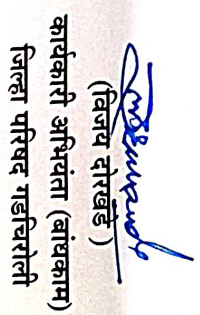 (विजय दोरखंडे )
कार्यकारी अभियंता (बांधकाम)
जिल्हा परिषद गडचिरोली